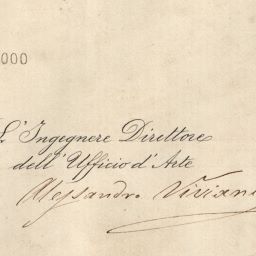 000
L'Ingegnere Direttore
dell'Ufficio d'Arte
Alessandro Viviani